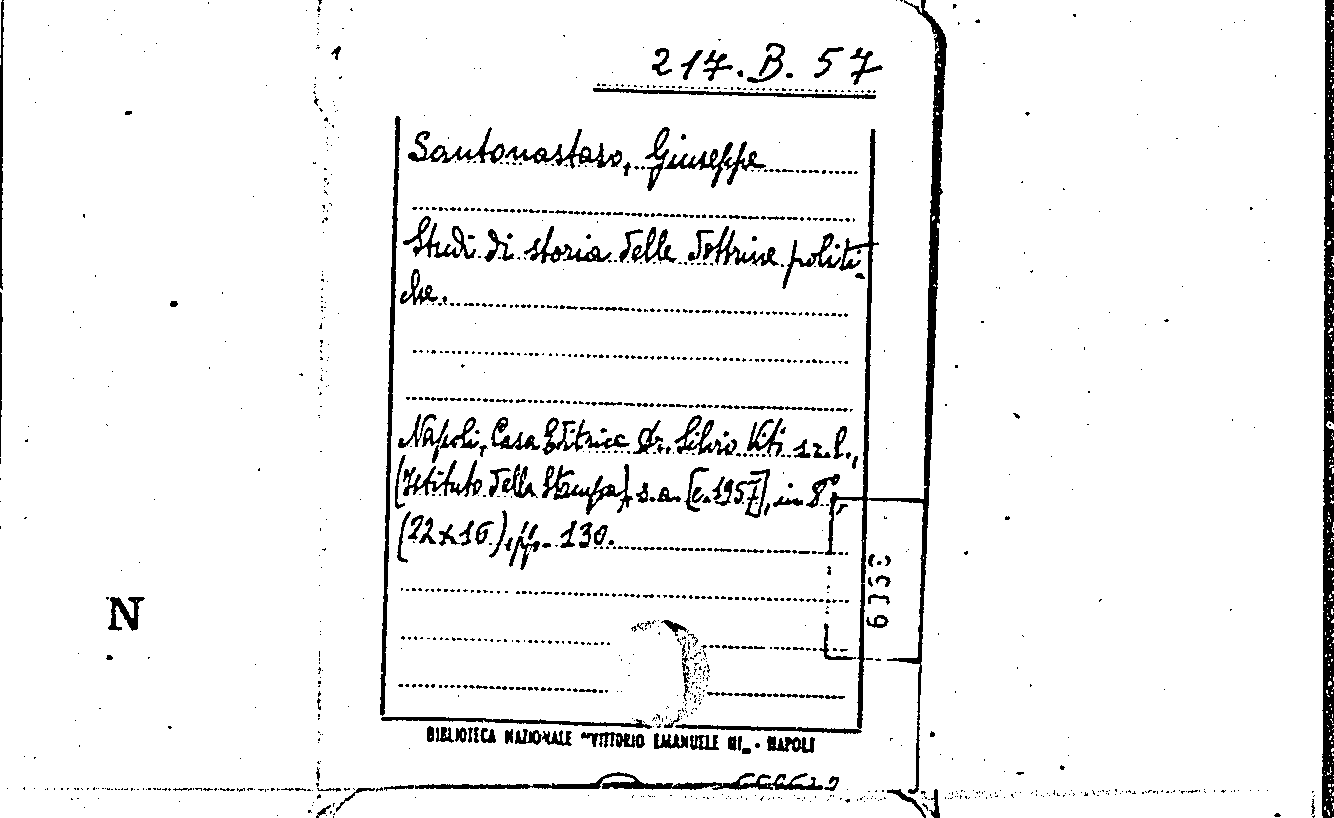 217.B.57
Santonastaso, Giuseppe
Studi di storia delle dottrine politi-
che.
Napoli, Casa Editrice Dr. Silvio Viti s.r.l.,
(Istituto della Stampa), s.a. [c.1957], in 8°,
(22x16), pp. 130.
N
BIBLIOTECA NAZIONALE "VITTORIO EMANUELE III" - NAPOLI